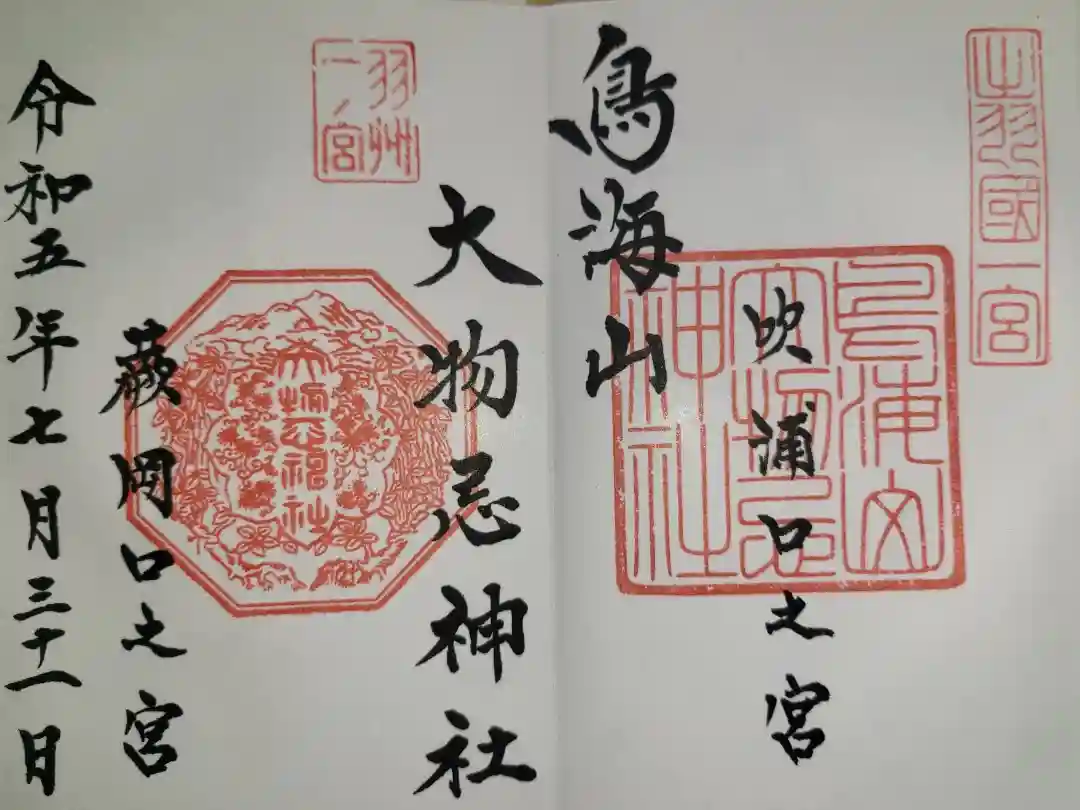 出羽國一宮
吹浦口之宮
鳥海山大物忌神社
鳥海山
大物忌
神社
羽州
一ノ宮
大物忌神社
蕨岡口之宮
令和五年七月三十一日